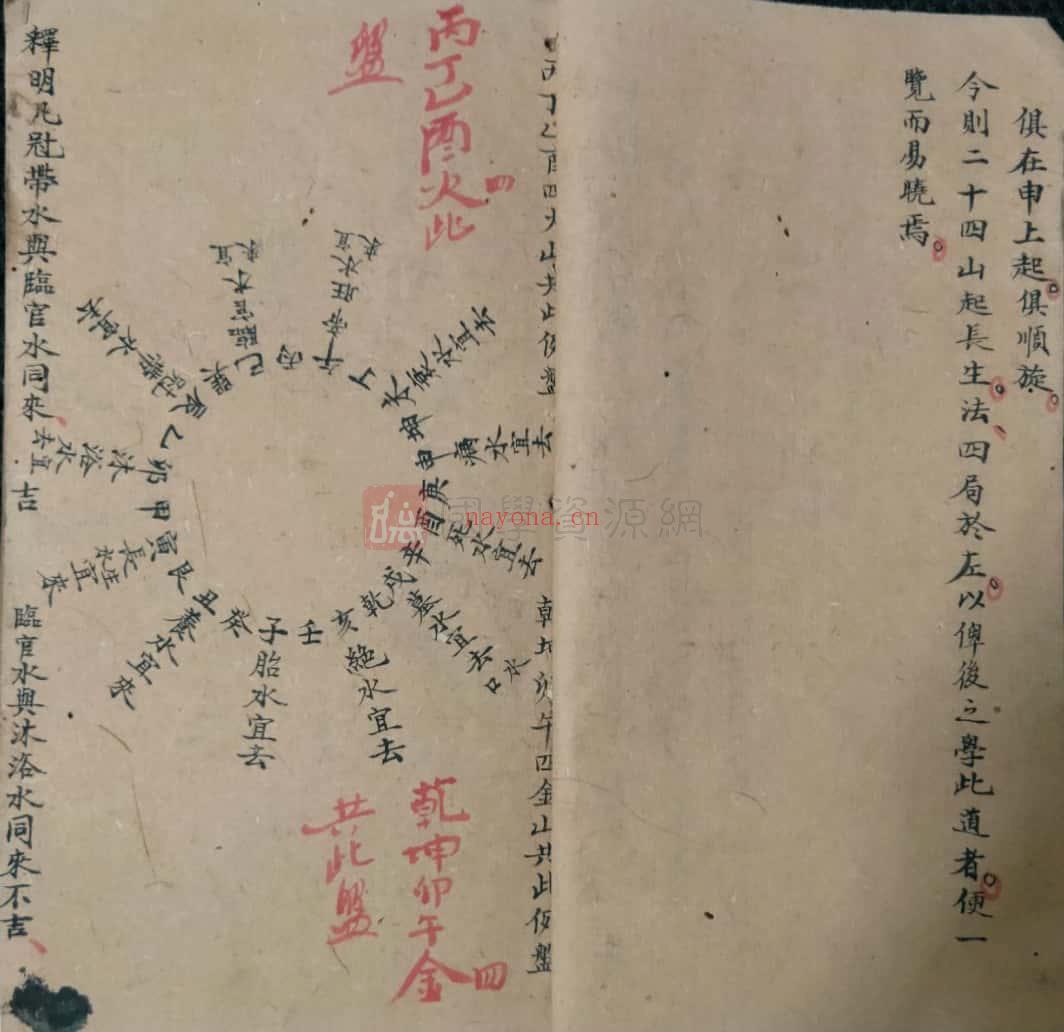 俱在申上起。俱順旋。
今則二十四山起長生法、四局於左。以俾後之學此道者。便一
覽而易曉焉。
丙丁乙酉四火山共此傍盤
乾坤卯午四金山共此傍盤
丙丁乙酉四火此
盤
乾坤卯午四金
共此盤
午帝旺水宜來
丁
未衰水宜去
坤
申病水宜去
庚
酉死水宜去
辛
戌墓水宜去水口
乾
亥絕水宜去
壬
子胎水宜去
癸
丑養水宜來
艮
寅長生水宜來
甲
卯沐浴水宜去
乙
辰冠帶水宜來
巽
巳臨官水宜來
丙
釋明凡冠帶水與臨官水同來、吉
臨官水與沐浴水同來不吉、
國學資源網
nayona.cn